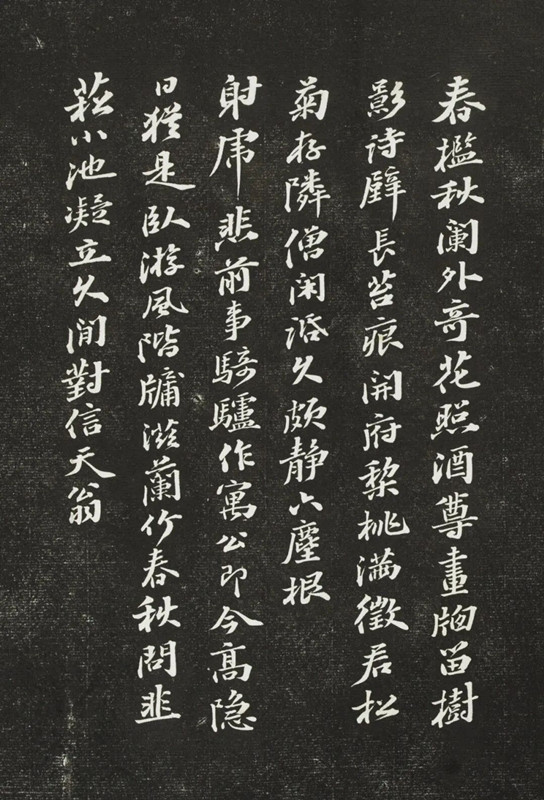 春檻秋闌外奇花照酒尊畫牕留樹
影詩壁長苔痕開府黎桃滿徵君松
菊存隣僧閑話久頗靜六塵根
射虎悲前事騎驢作寓公即今高隐
日猶是臥游風階牖滋蘭竹春秋問韭
菘小池凝立久閒對信天翁